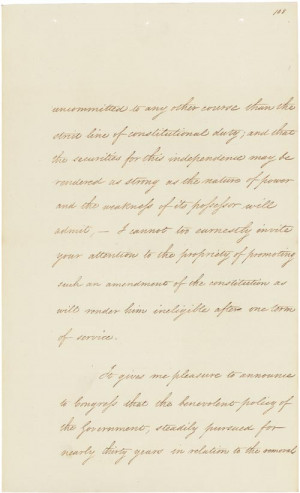 101
uncommitted to any other course than the
strict line of constitutional duty; and that
the securities for this independence may be
rendered as strong as the nature of power
and the weakness of its possessor will
admit, — I cannot too earnestly invite
your attention to the propriety of promoting
such an amendment of the constitution as
will render him ineligible after one term
of service.
It gives me pleasure to announce
to Congress that the benevolent policy of
the Government, steadily pursued for
nearly thirty years in relation to the removal